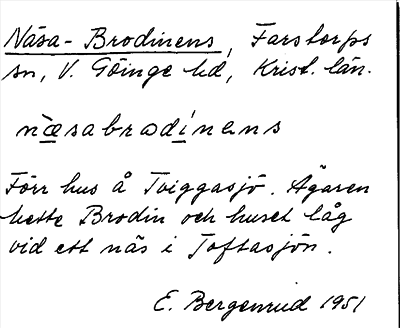 Näsa-Brodinens, Farstorps
sn, V. Göinge hd, Krist. län.
næsabrɷdínens
Förr hus å Tviggasjö. Ägaren
hette Brodin och huset låg
vid ett näs i Toftasjön.
E. Bergenrud 1951